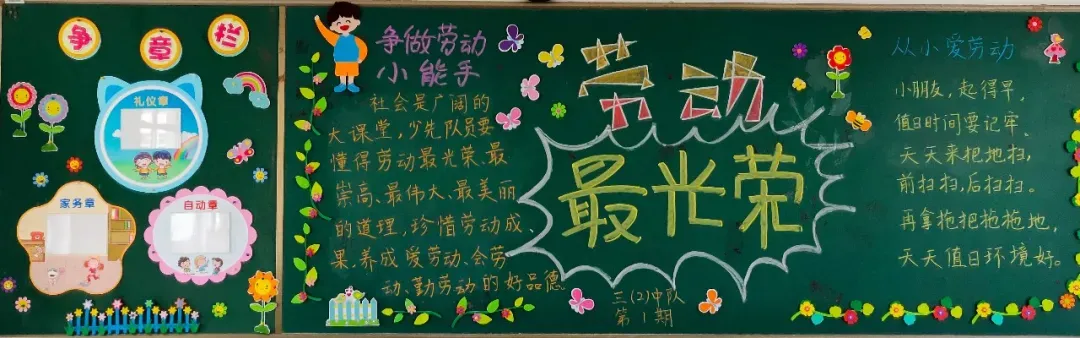 争章栏
礼仪章
家务章
自动章
争做劳动
小能手
社会是广阔的
大课堂,少先队员要
懂得劳动最光荣、最
崇高、最伟大、最美丽
的道理,珍惜劳动成
果,养成爱劳动、会劳
动、勤劳动的好品德
劳动
最光荣
三(2)中队
第1期
从小爱劳动
小朋友,起得早,
值日时间要记牢、
天天来把地扫,
前扫扫,后扫扫。
再拿拖把拖拖地,
天天值日环境好。